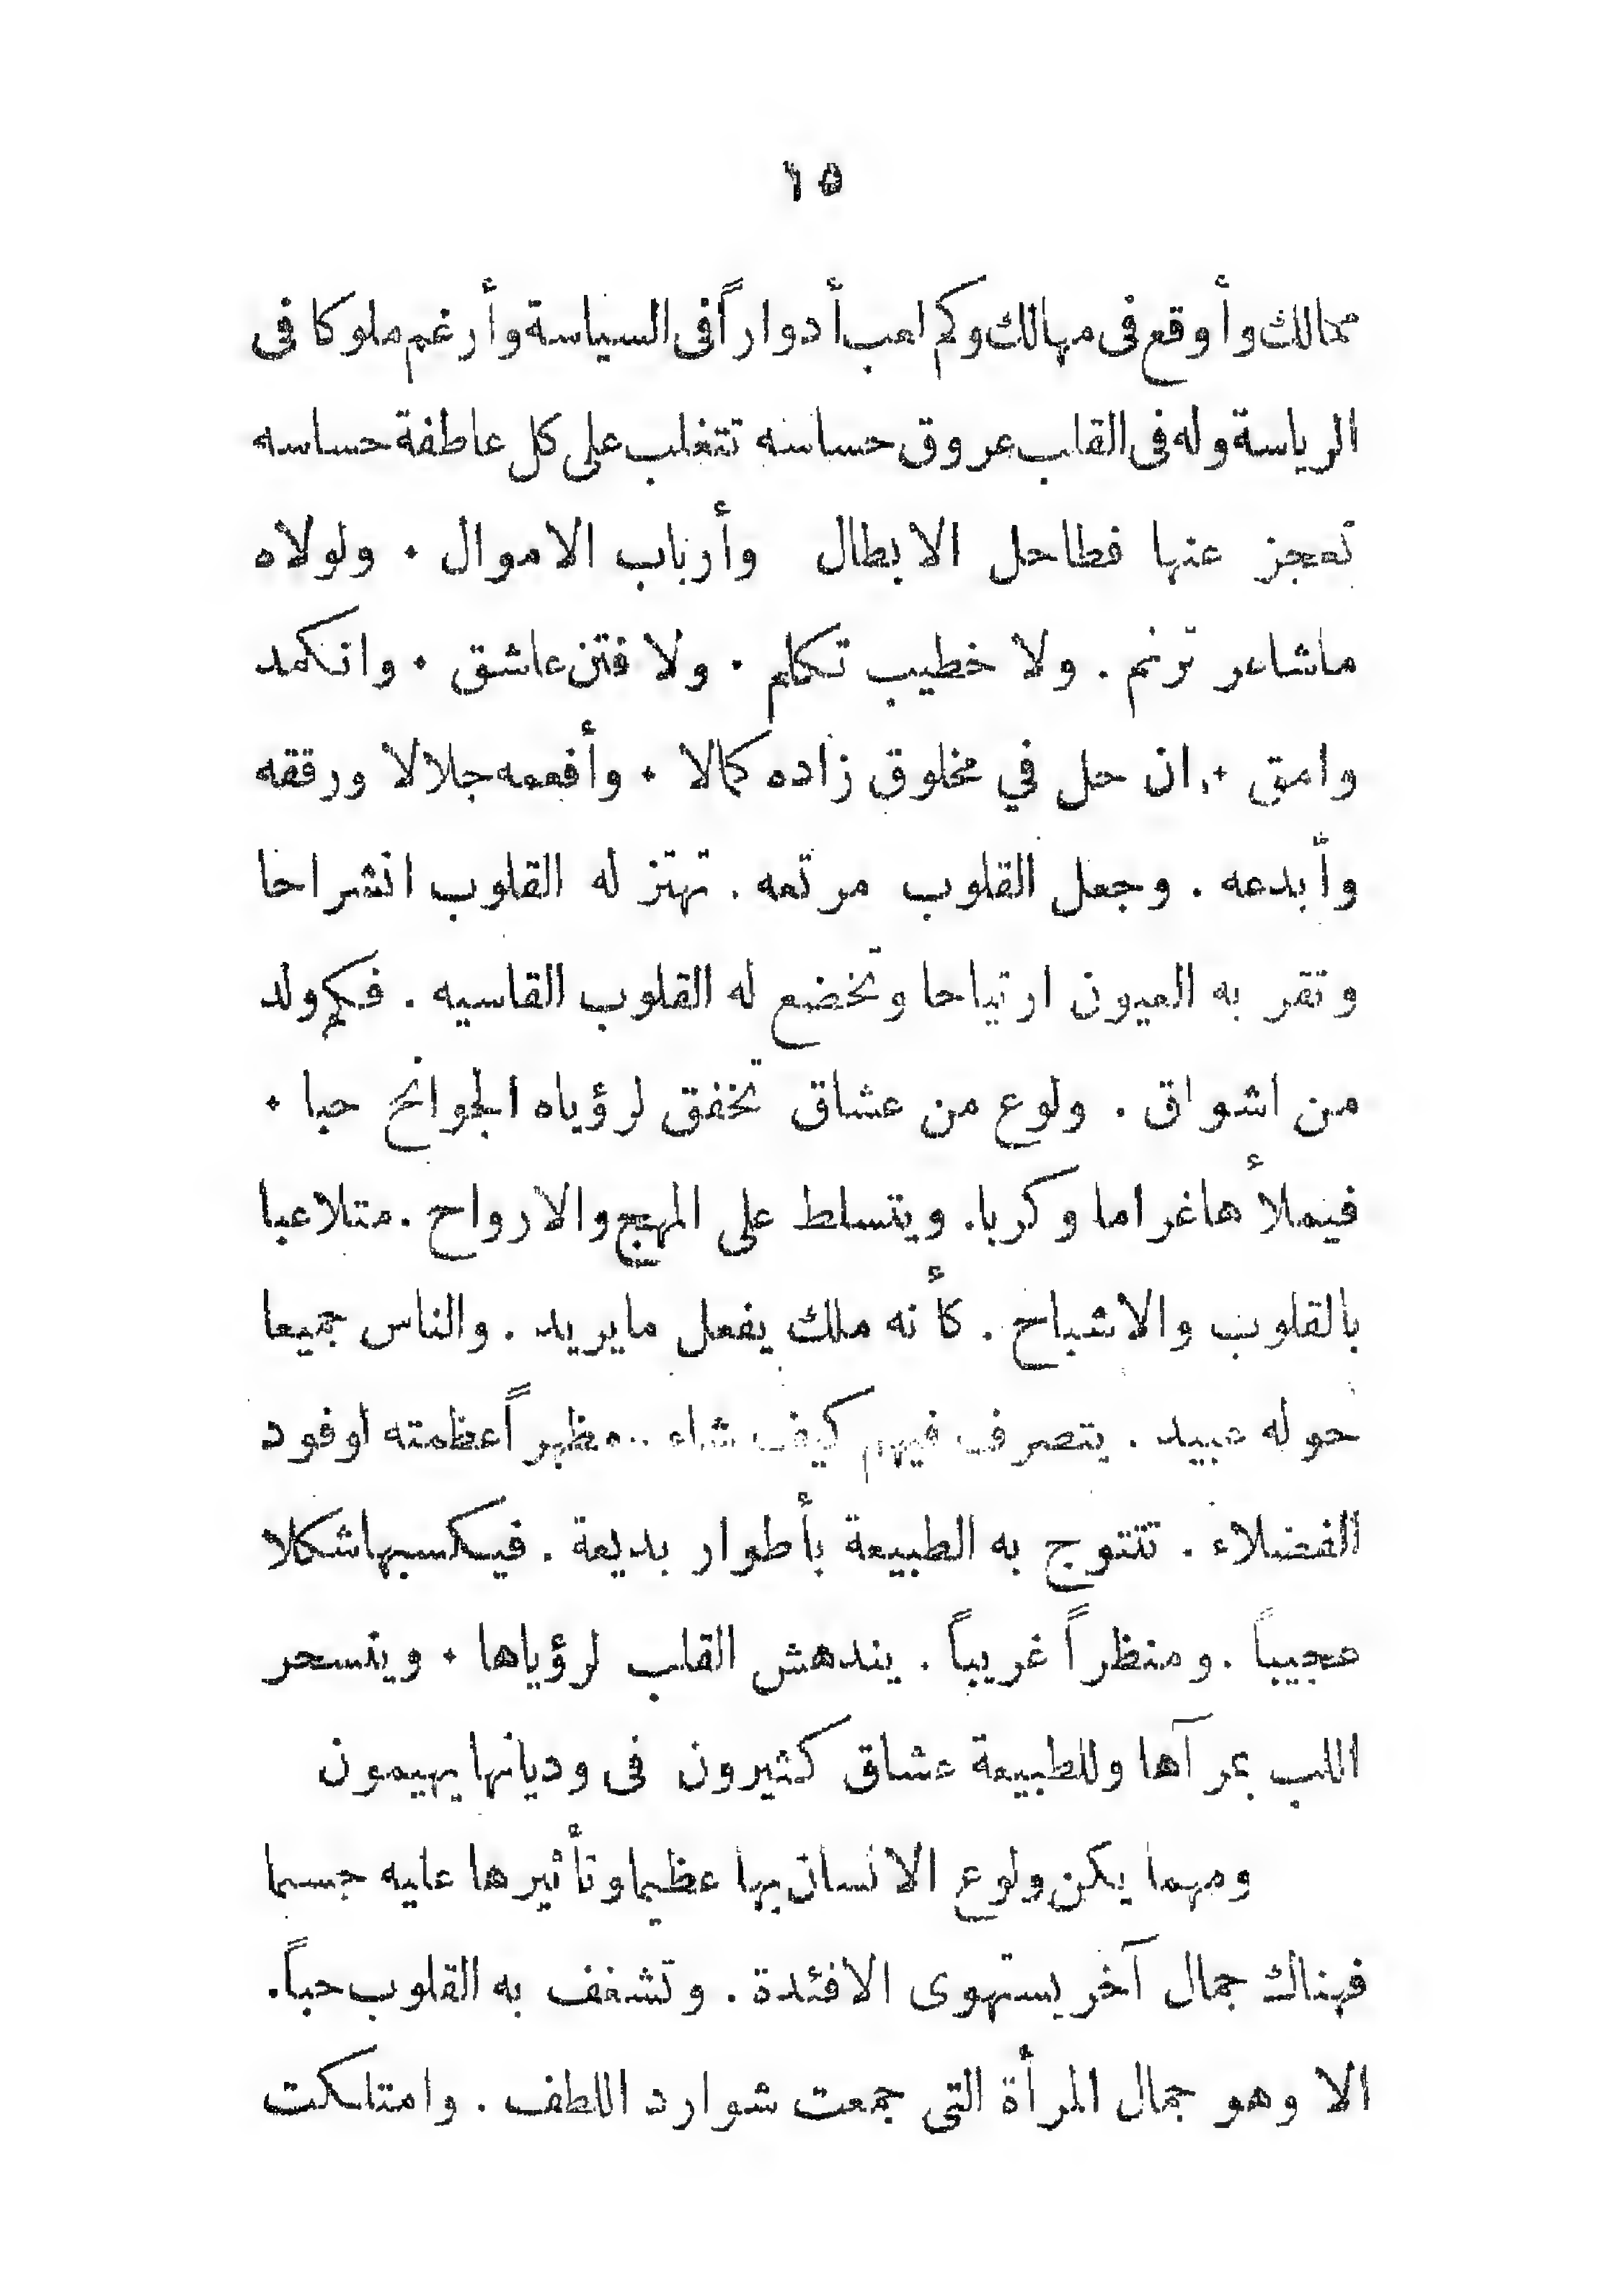 ١٥
ممالك وأوقع فى مهالك وكم لعب أدواراً فى السياسة وأرغم ملوكا فى
الرياسة وله فى القلب عروق حساسه تتغلب على كل عاطفة حساسه
تعجز عنها فطاحل الابطال وأرباب الاموال . ولولاه
ماشاعر ترنم . ولا خطيب تكلم . ولا فتن عاشق . وانكمد
وامق . ان حل في مخلوق زاده كمالا . وأفعمه جلالا ورققه
وأبدعه . وجعل القلوب مرتعه . تهتز له القلوب انشراحا
وتقر به العيون ارتياحا وتخضع له القلوب القاسيه . فكم ولد
من اشواق . ولوع من عشاق تخفق لرؤياه الجوانح حبا .
فيملأها غراما وكربا. ويتسلط على المهج والارواح . متلاعبا
بالقلوب والاشباح . كأنه ملك يفعل مايريد . والناس جميعا
حوله عبيد . يتصرف فيهم كيف شاء .. مظهراً عظمته لوفود
الفضلاء . تتتوج به الطبيعة بأطوار بديعة . فيكسبها شكلا
عجيباً . ومنظراً غريباً . يندهش القلب لرؤياها . وينسحر
اللب بمرآها وللطبيعة عشاق كثيرون فى وديانها يهيمون
ومهما يكن ولوع الانسان بها عظيما وتأثيرها عليه جسيما
فهناك جمال آخر يستهوى الافئدة . وتشغف به القلوب حباً.
الا وهو جمال المرأة التى جمعت شوارد اللطف . وامتلكت